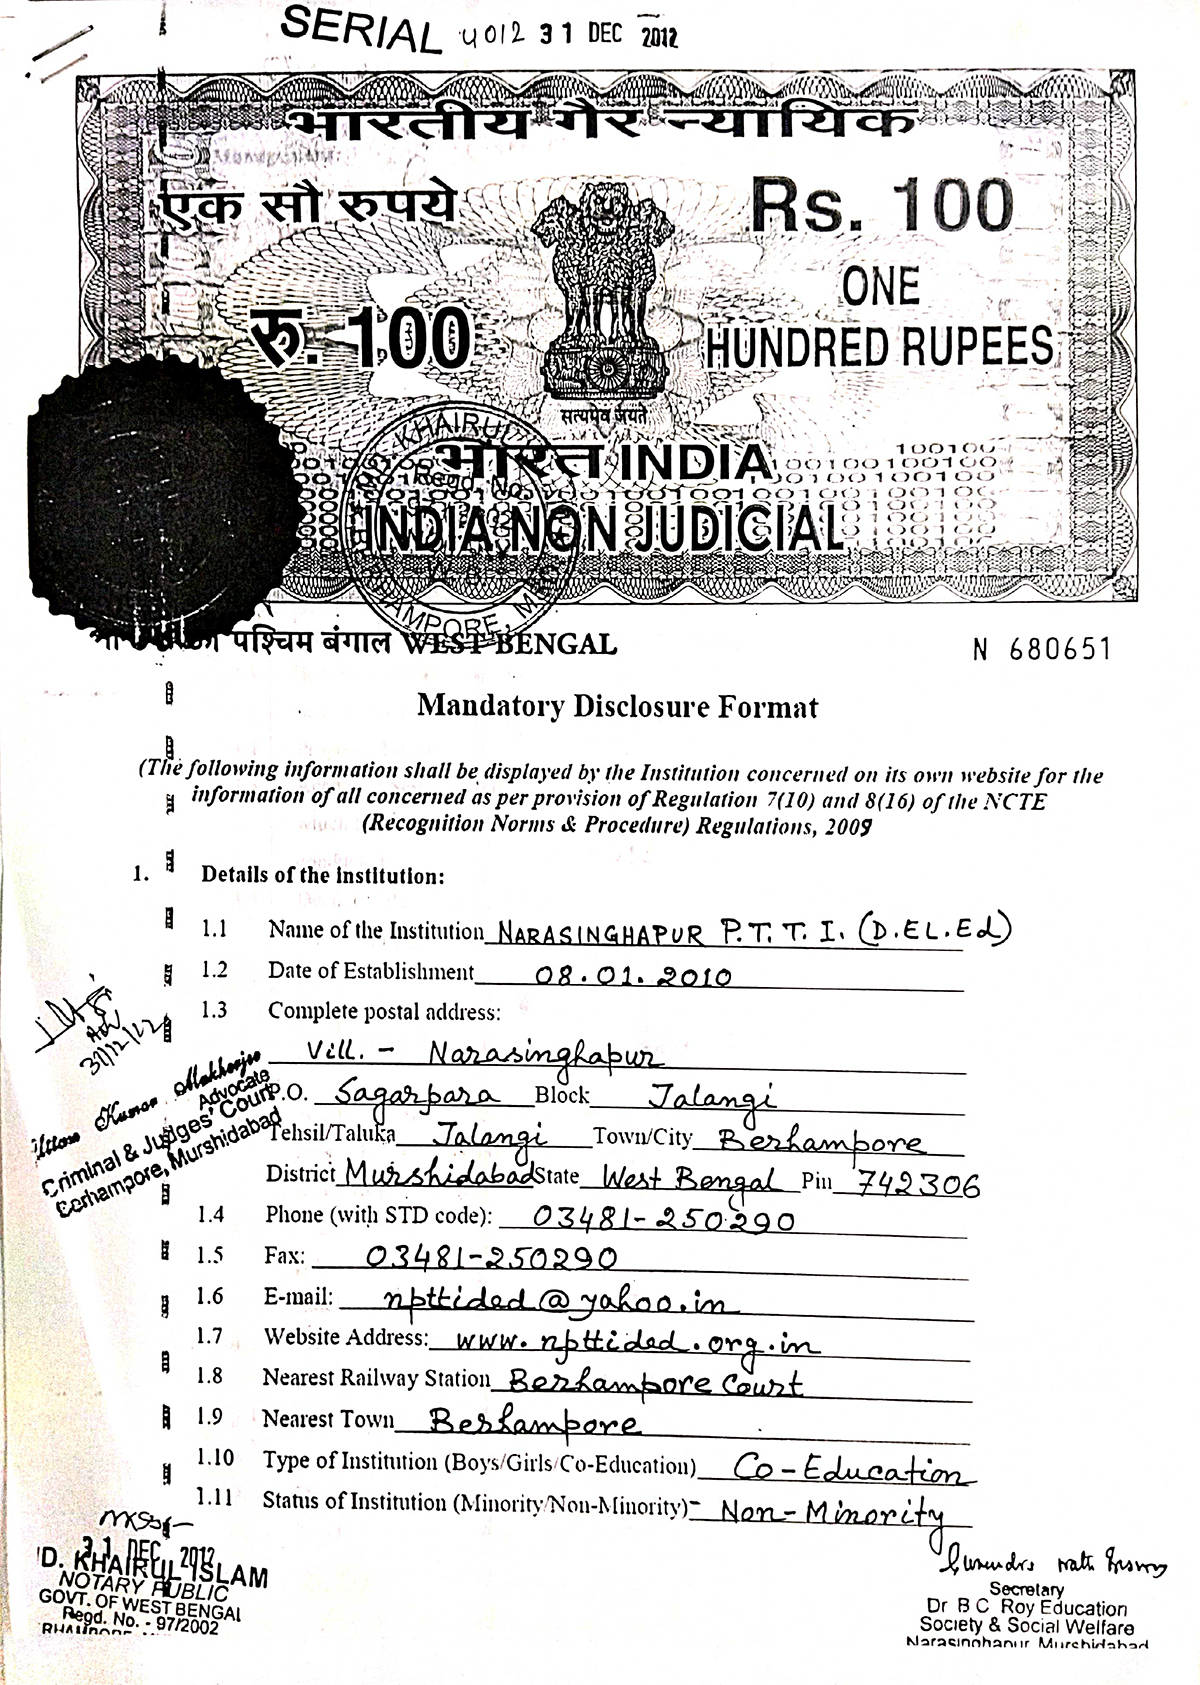 SERIAL 4012 31 DEC 2012
भारतीय गैर न्यायिक
एक सौ रुपये
Rs. 100
रु. 100
ONE
HUNDRED RUPEES
सत्यमेव जयते
भारत INDIA
INDIA NON JUDICIAL
KHAIRUL
Regd. No.
पश्चिम बंगाल WEST BENGAL
N 680651
Mandatory Disclosure Format
(The following information shall be displayed by the Institution concerned on its own website for the
information of all concerned as per provision of Regulation 7(10) and 8(16) of the NCTE
(Recognition Norms & Procedure) Regulations, 2009
1. Details of the institution:
1.1 Name of the Institution NARASINGHAPUR P.T.T.I. (D.EL.Ed)
1.2 Date of Establishment 08.01.2010
1.3 Complete postal address:
Vill. - Narasinghapur
P.O. Sagarpara Block Jalangi
Tehsil/Taluka Jalangi Town/City Berhampore
District Murshidabad State West Bengal Pin 742306
1.4 Phone (with STD code): 03481-250290
1.5 Fax: 03481-250290
1.6 E-mail: npttided@yahoo.in
1.7 Website Address: www.npttided.org.in
1.8 Nearest Railway Station Berhampore Court
1.9 Nearest Town Berhampore
1.10 Type of Institution (Boys/Girls/Co-Education) Co-Education
1.11 Status of Institution (Minority/Non-Minority)- Non-Minority
Adv
31/12/12
Uttam Kumar Mukherjee
Advocate
Criminal & Judges' Court
Berhampore, Murshidabad
31 DEC 2012
D. KHAIRUL ISLAM
NOTARY PUBLIC
GOVT. OF WEST BENGAL
Regd. No. - 97/2002
Secretary
Dr B C Roy Education
Society & Social Welfare
Narasinghapur, Murshidabad